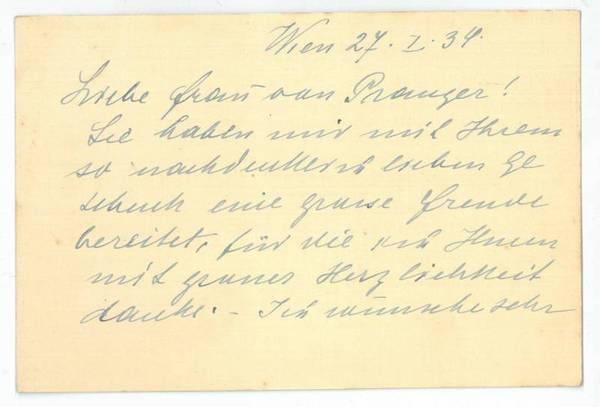 Wien 27. I. 34.
Liebe Frau von Pranger!
Sie haben mir mit Ihrem
so nachdenklich lieben Ge
schenk eine grosse Freude
bereitet, für die ich Ihnen
mit ganzer Herzlichkeit
danke. – Ich wünsche sehr